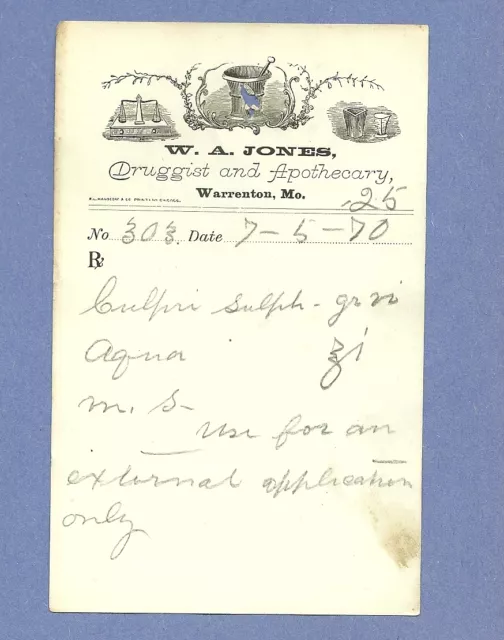 W. A. JONES,
Druggist and Apothecary,
Warrenton, Mo.
.25
No 303 Date 7-5-70
℞
Sulph - gr vi
Aqua ℥i
M. S-
Use for an
external application
only